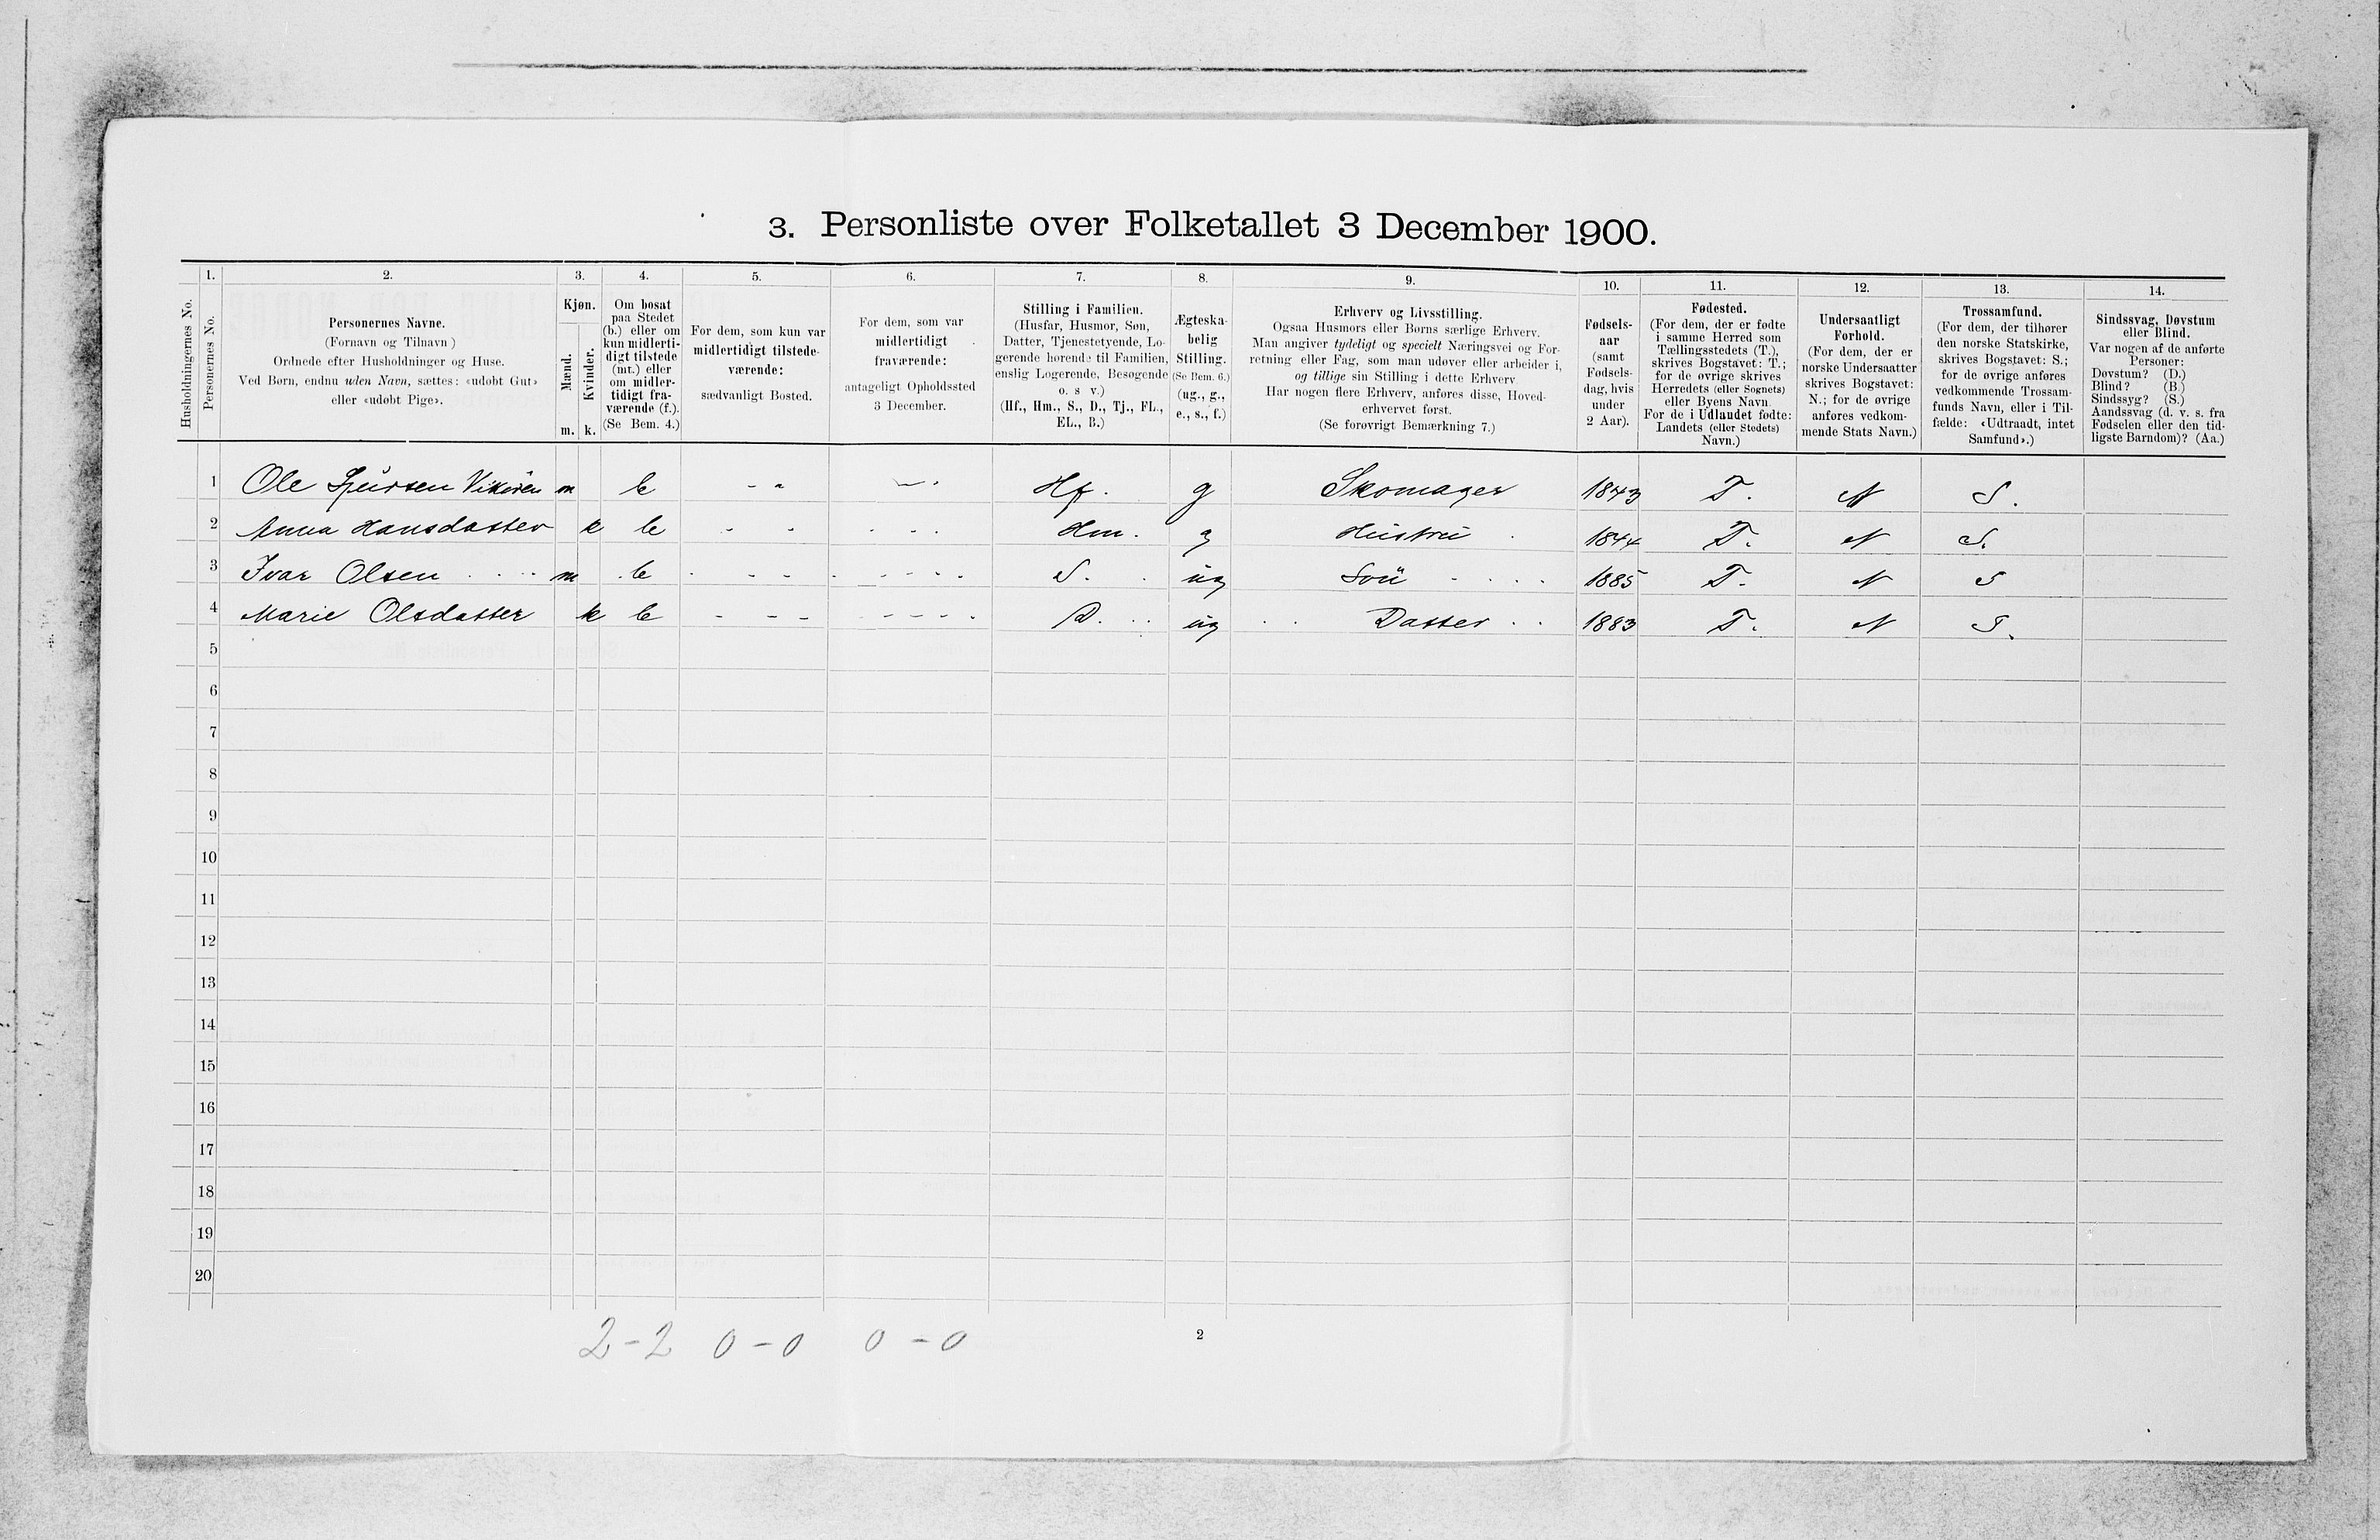 3. Personliste over Folketallet 3 December 1900.
Husholdningernes No.
1. Personernes No.
2. Personernes Navne.
(Fornavn og Tilnavn)
Ordnede efter Husholdninger og Huse.
Ved Børn, endnu uden Navn, sættes: «udøbt Gut»
eller «udøbt Pige».
3. Kjøn.
Mænd. m.
Kvinder. k.
4. Om bosat
paa Stedet
(b.) eller om
kun midlerti-
digt tilstede
(mt.) eller
om midler-
tidigt fra-
værende (f.).
(Se Bem. 4.)
5. For dem, som kun var
midlertidigt tilstede-
værende:
sædvanligt Bosted.
6. For dem, som var
midlertidigt
fraværende:
antageligt Opholdssted
3 December.
7. Stilling i Familien.
(Husfar, Husmor, Søn,
Datter, Tjenestetyende, Lo-
gerende hørende til Familien,
enslig Logerende, Besøgende
o. s v.)
(Hf., Hm., S., D., Tj., FL.,
EL., B.)
8. Ægteska-
belig
Stilling.
(Se Bem. 6.)
(ug., g.,
e., s., f.)
9. Erhverv og Livsstilling.
Ogsaa Husmors eller Børns særlige Erhverv.
Man angiver tydeligt og specielt Næringsvei og For-
retning eller Fag, som man udøver eller arbeider i,
og tillige sin Stilling i dette Erhverv
Har nogen flere Erhverv, anføres disse, Hoved-
erhvervet først.
(Se forøvrigt Bemærkning 7.)
10. Fødsels-
aar
(samt
Fødsels-
dag, hvis
under
2 Aar).
11. Fødested.
(For dem, der er fødte
i samme Herred som
Tællingsstedets (T.),
skrives Bogstavet: T.;
for de øvrige skrives
Herredets (eller Sognets)
eller Byens Navn.
For de i Udlandet fødte:
Landets (eller Stedets)
Navn.)
12. Undersaatligt
Forhold.
(For dem, der er
norske Undersaatter
skrives Bogstavet:
N.; for de øvrige
anføres vedkom-
mende Stats Navn.)
13. Trossamfund.
(For dem, der tilhører
den norske Statskirke,
skrives Bogstavet: S.;
for de øvrige anføres
vedkommende Trossam-
funds Navn, eller i Til-
fælde: «Udtraadt, intet
Samfund».)
14. Sindssvag, Døvstum
eller Blind.
Var nogen af de anførte
Personer:
Døvstum? (D.)
Blind? (B.)
Sindssyg? (S.)
Aandssvag (d. v. s. fra
Fødselen eller den tid-
ligste Barndom)? (Aa.)
1 Ole Sjursen Vikøren m b - - - - Hf. g Skomager 1843 T. N S.
2 Anna Hansdatter k b - - - - - Hm. g Hustru 1844 T. N S.
3 Ivar Olsen m b - - - - - - S. ug Søn 1885 T. N S
4 Marie Olsdatter k b - - - - - - - D. ug Datter 1883 T. N S.
5
6
7
8
9
10
11
12
13
14
15
16
17
18
19
20
2-2 0-0 0-0
2